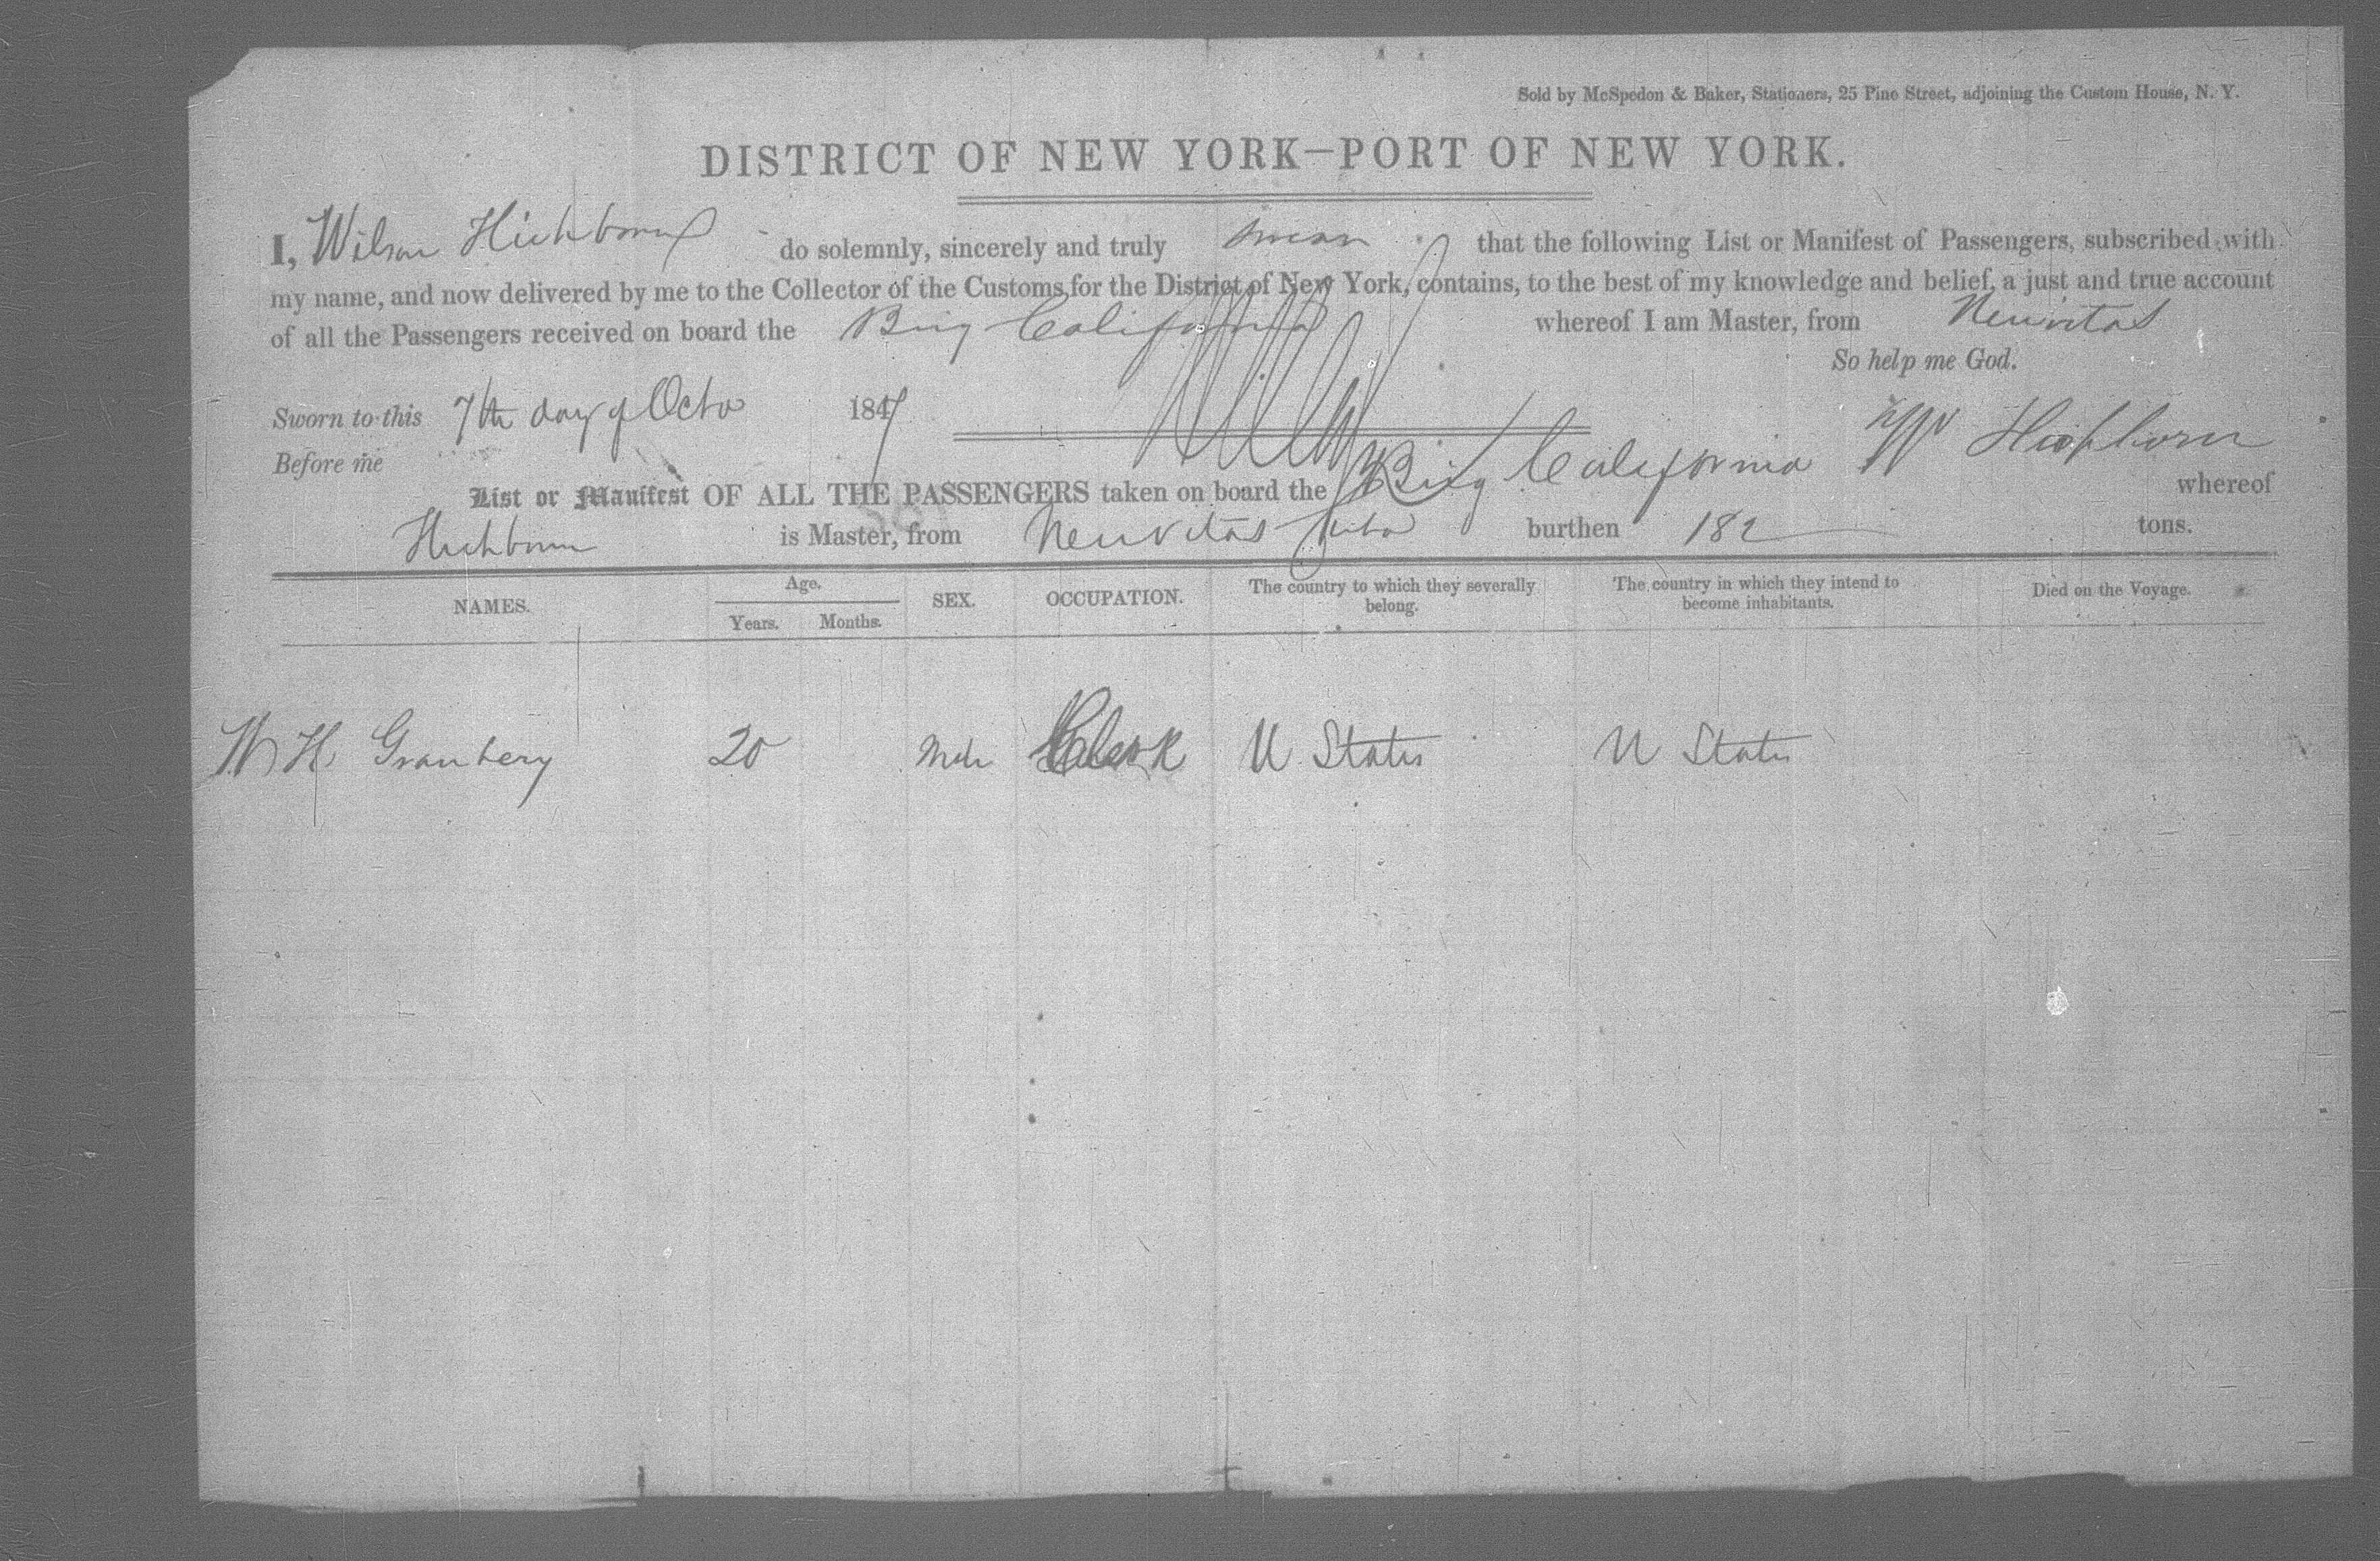 Sold by McSpedon & Baker, Stationers, 25 Pine Street, adjoining the Custom House, N. Y.
DISTRICT OF NEW YORK—PORT OF NEW YORK.
I, Wilson Hichborn do solemnly, sincerely and truly swear that the following List or Manifest of Passengers, subscribed with
my name, and now delivered by me to the Collector of the Customs for the District of New York, contains, to the best of my knowledge and belief, a just and true account
of all the Passengers received on board the Brig California whereof I am Master, from Neuvitas
So help me God.
Sworn to this 7th day of Octo 1847
Before me W Hichborn
List or Manifest OF ALL THE PASSENGERS taken on board the Brig California whereof
Hichborn is Master, from Neuvitas Cuba burthen 182 tons.
NAMES. Age. Years. Months. SEX. OCCUPATION. The country to which they severally belong. The country in which they intend to become inhabitants. Died on the Voyage.
W H Granbery 20 Male Clerk U States U States